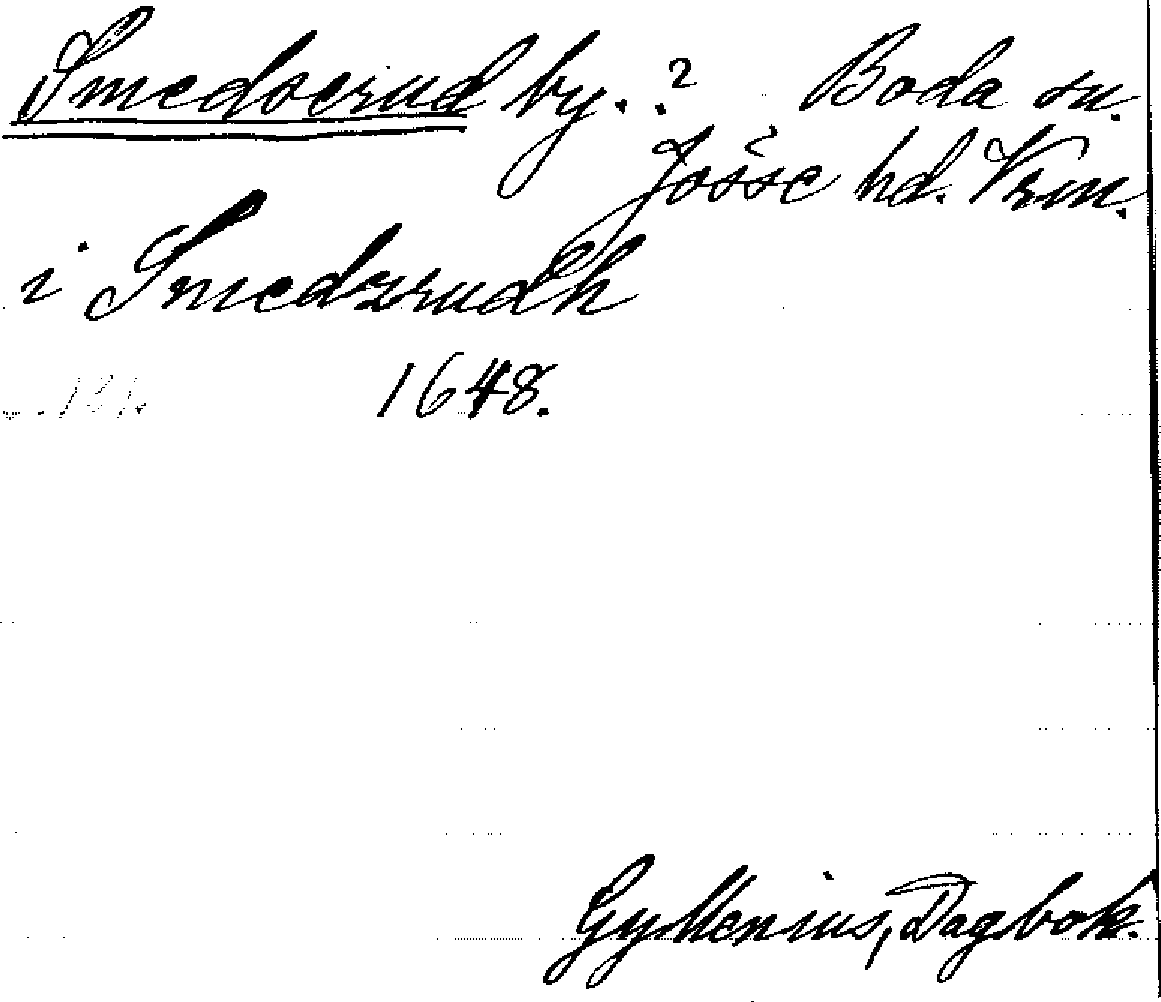 Smedserud by. .? Boda sn.
Jösse hd. Vrm.
i Smedzrudh
1648.
Gyllenius, Dagbok.